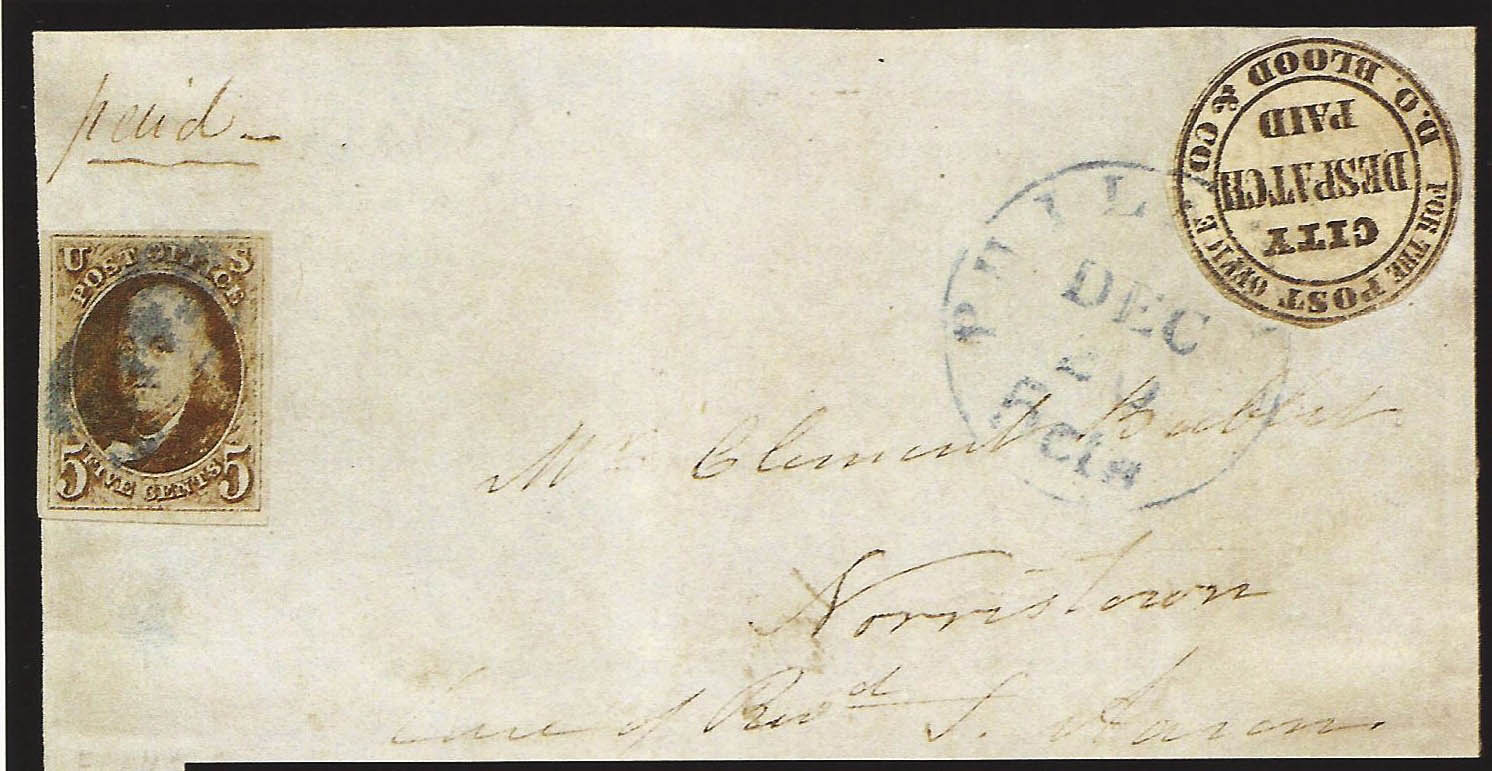 paid
U S
POST OFFICE
5 FIVE CENTS 5
D.O. BLOOD & CO.
CITY
DESPATCH
PAID
FOR THE POST OFFICE
PHILA
DEC
5 Cts
Mr. Clement
Norristown
Care of Revd. S. Aaron.